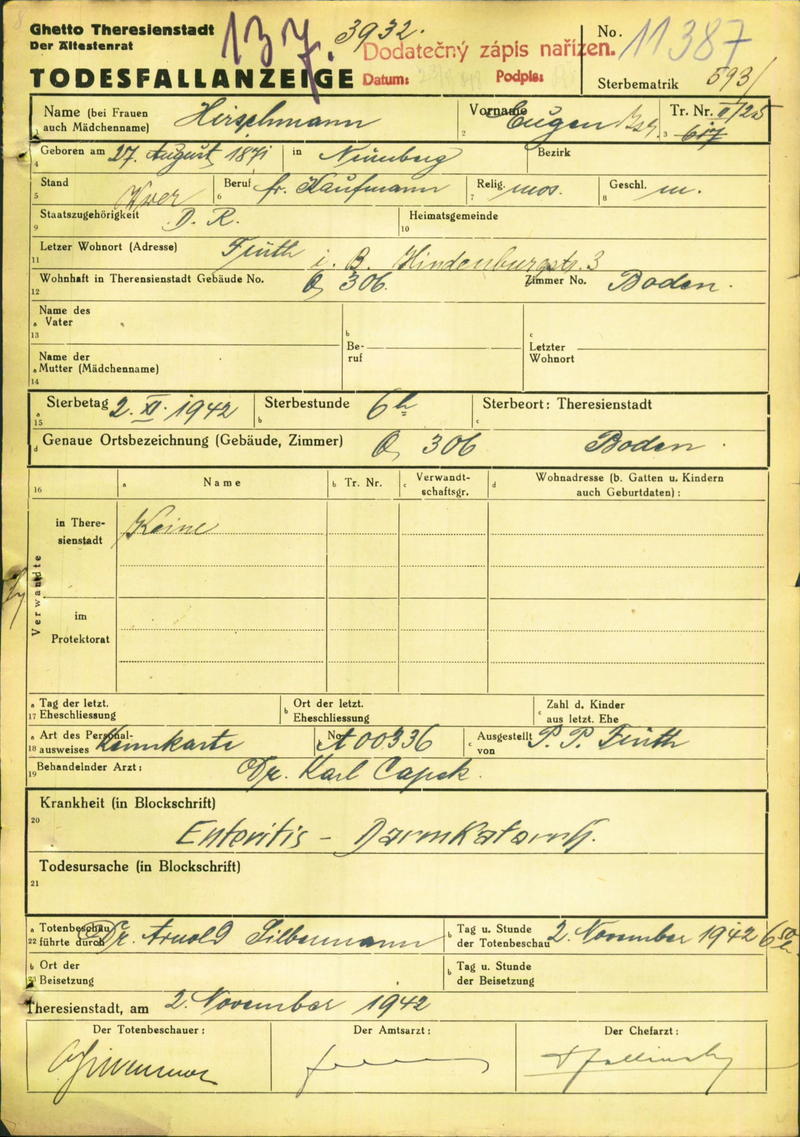 Ghetto Theresienstadt
Der Ältestenrat
137. 3932.
Dodatečný zápis nařízen.
Datum: Podpis:
No. 11387
TODESFALLANZEIGE
Sterbematrik 593/
Name (bei Frauen auch Mädchenname) Hirschmann
Vorname Eugen Isr.
Tr. Nr. II/25
617
Geboren am 27. August 1871 in Nürnberg Bezirk
Stand Wwer Beruf fr. Kaufmann Relig. mos. Geschl. m.
Staatszugehörigkeit D. R. Heimatsgemeinde
Letzer Wohnort (Adresse) Fürth i. B. Hindenburgstr. 3
Wohnhaft in Theresienstadt Gebäude No. Q 306. Zimmer No. Boden.
Name des Vater
Be-ruf
Letzter Wohnort
Name der Mutter (Mädchenname)
Sterbetag 2. XI. 1942 Sterbestunde 6h Sterbeort: Theresienstadt
Genaue Ortsbezeichnung (Gebäude, Zimmer) Q 306 Boden.
16 a Name b Tr. Nr. c Verwandt-schaftsgr. d Wohnadresse (b. Gatten u. Kindern auch Geburtdaten):
Verwandte
in There-sienstadt Keine
im Protektorat
a Tag der letzt. Eheschliessung b Ort der letzt. Eheschliessung c Zahl d. Kinder aus letzt. Ehe
a Art des Personal-ausweises Kennkarte No. A00336 c Ausgestellt von P. P. Fürth
Behandelnder Arzt: Dr. Karl Capek.
Krankheit (in Blockschrift)
Enteritis - Darmkatarrh.
Todesursache (in Blockschrift)
a Totenbeschau führte durch Dr. Arnold Silbermann b Tag u. Stunde der Totenbeschau 2. November 1942 6 50 h
b Ort der Beisetzung b Tag u. Stunde der Beisetzung
Theresienstadt, am 2. November 1942
Der Totenbeschauer: Der Amtsarzt: Der Chefarzt: